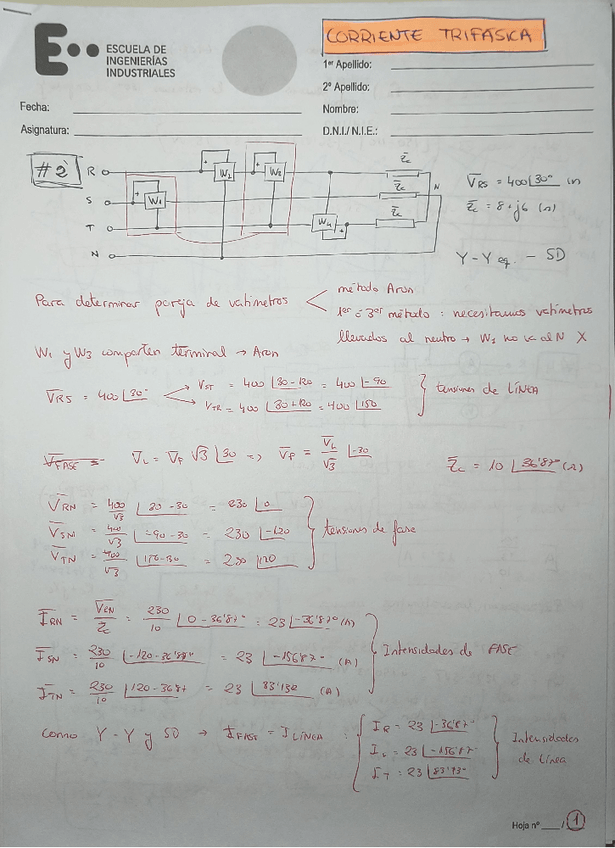 ESCUELA DE
INGENIERÍAS
INDUSTRIALES
CORRIENTE TRIFASICA
1er Apellido:
2º Apellido:
Nombre:
D.N.I./ N.I.E.:
Fecha:
Asignatura:
#2
R
S
T
N
W1
W2
W3
W4
Z̄c
Z̄c
Z̄c
N
V̄RS = 400∠30°
Z̄c = 8+j6 (Ω)
Y-Y eq. - SD
Para determinar pareja de vatímetros
método Aron
1er ó 3er método : necesitamos vatímetros
llevados al neutro → no va al N X
W1 y W3 comparten terminal → Aron
V̄RS = 400∠30°
VST = 400∠30-120 = 400∠-90
VTR = 400∠30+120 = 400∠150
tensiones de LÍNEA
V̄FASE =
V̄L = V̄F √3∠30 => V̄F = V̄L/√3 ∠-30
Z̄c = 10∠36'87° (Ω)
V̄RN = 400/√3 ∠30-30 = 230∠0
V̄SN = 400/√3 ∠-90-30 = 230∠-120
V̄TN = 400/√3 ∠150-30 = 230∠120
tensiones de fase
ĪRN = V̄RN/Z̄c = 230/10 ∠0-36'87° = 23∠-36'87° (A)
ĪSN = 230/10 ∠-120-36'87° = 23∠-156'87° (A)
ĪTN = 230/10 ∠120-36'87 = 23∠83'13° (A)
Intensidades de FASE
Como Y-Y y SD → IFASE = ILÍNEA :
IR = 23∠-36'87°
IS = 23∠-156'87°
IT = 23∠83'13°
Intensidades
de Línea
Hoja nº ___/ 1